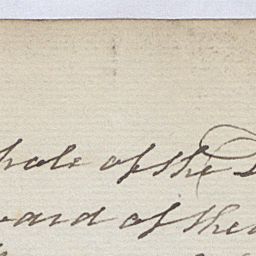 hole of the
ward of the